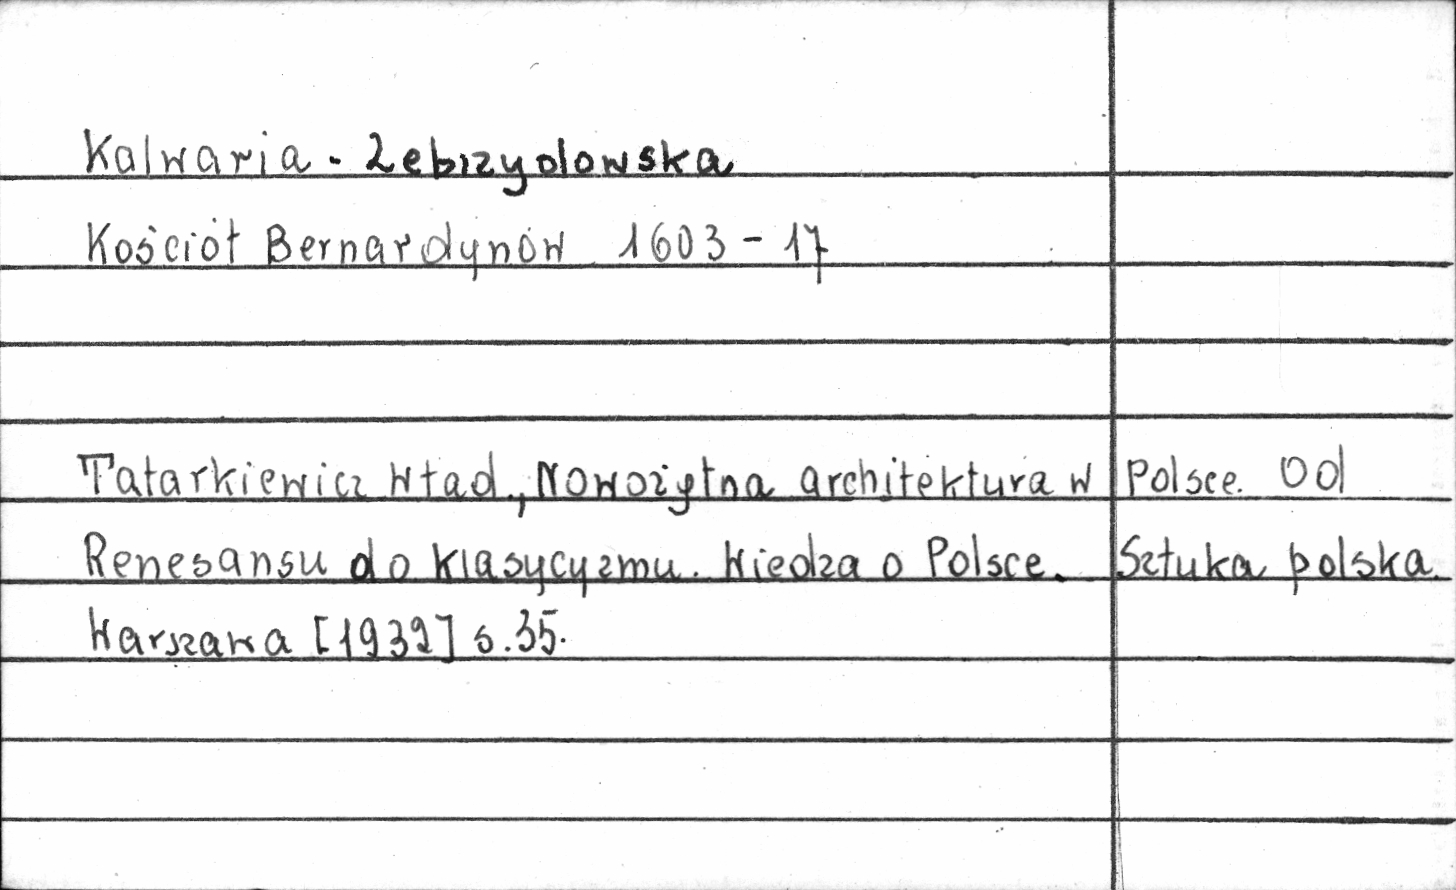 Kalwaria - Zebrzydowska
Kościół Bernardynów 1603 - 17
Tatarkiewicz Wład., Nowożytna architektura w Polsce. Od
Renesansu do klasycyzmu. Wiedza o Polsce. Sztuka polska.
Warszawa [1932] s. 35.